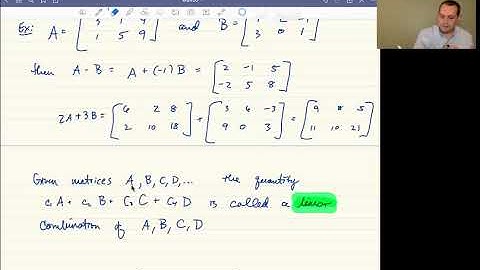 Ex: A = [ 3 1 4 ; 1 5 9 ] and B = [ 1 2 -1 ; 3 0 1 ]
then A - B = A + (-1) B = [ 2 -1 5 ; -2 5 8 ]
2A + 3B = [ 6 2 8 ; 2 10 18 ] + [ 3 6 -3 ; 9 0 3 ] = [ 9 8 5 ; 11 10 21 ]
Given matrices A, B, C, D, ... the quantity
c₁ A + c₂ B + C₃ C + C₄ D is called a linear
combination of A, B, C, D